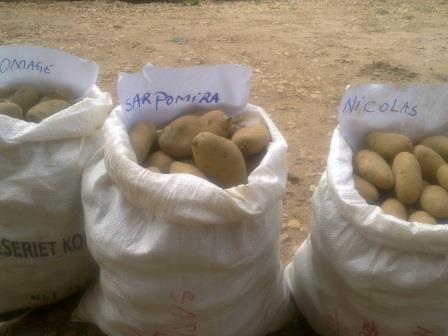 OMAGE
SARPOMIRA
NICOLAS
SERIET KO
SAR